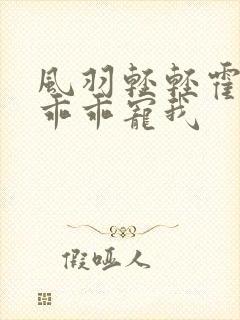 風羽輕輕霍
乖乖寵我
假啞人